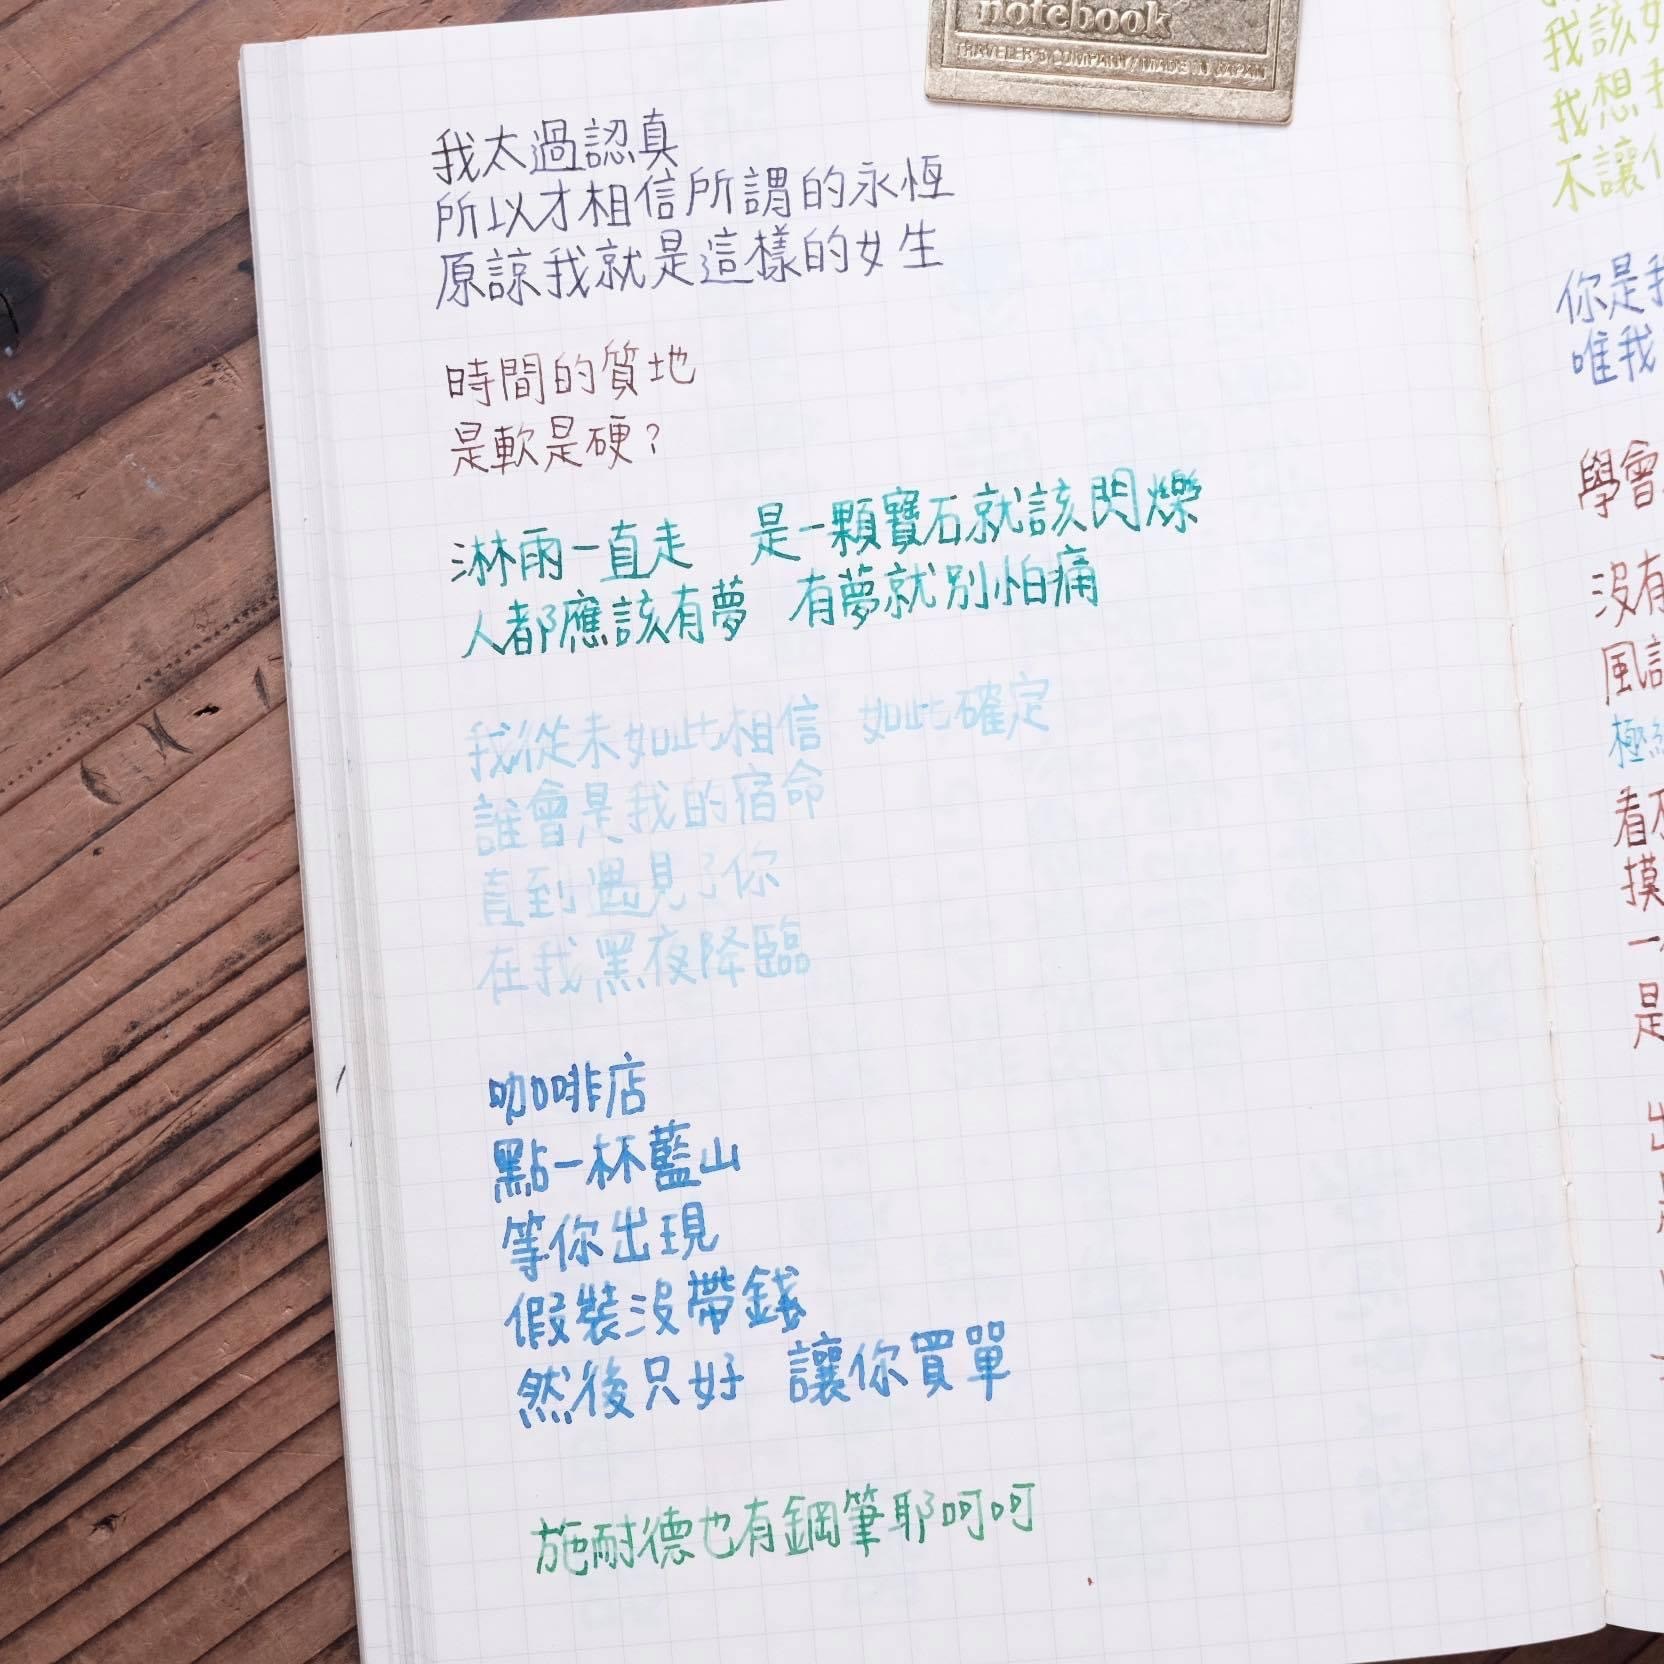 notebook
TRAVELER'S COMPANY / MADE IN JAPAN
我太過認真
所以才相信所謂的永恆
原諒我就是這樣的女生
時間的質地
是軟是硬？
淋雨一直走 是一顆寶石就該閃爍
人都應該有夢 有夢就別怕痛
我從未如此相信 如此確定
誰會是我的宿命
直到遇見了你
在我黑夜降臨
咖啡店
點一杯藍山
等你出現
假裝沒帶錢
然後只好 讓你買單
施耐德也有鋼筆耶呵呵
我該如
我想我
不讓你
你是我
唯我
學會
沒有
風
極
看不
摸
一
是
出